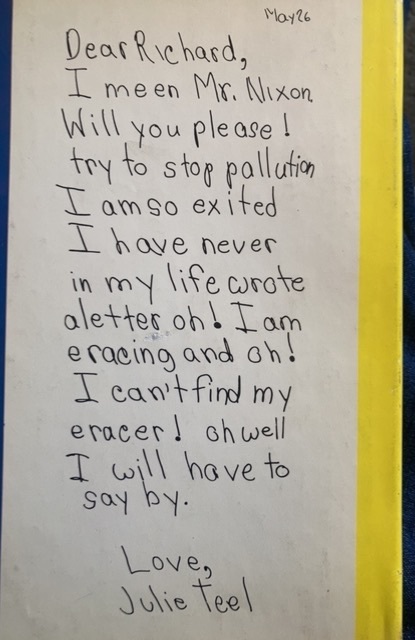 May 26
Dear Richard,
I meen Mr. Nixon
Will you please!
try to stop pollution
I am so exited
I have never
in my life wrote
a letter oh! I am
eracing and oh!
I can't find my
eracer! oh well
I will have to
say by.
Love,
Julie Teel